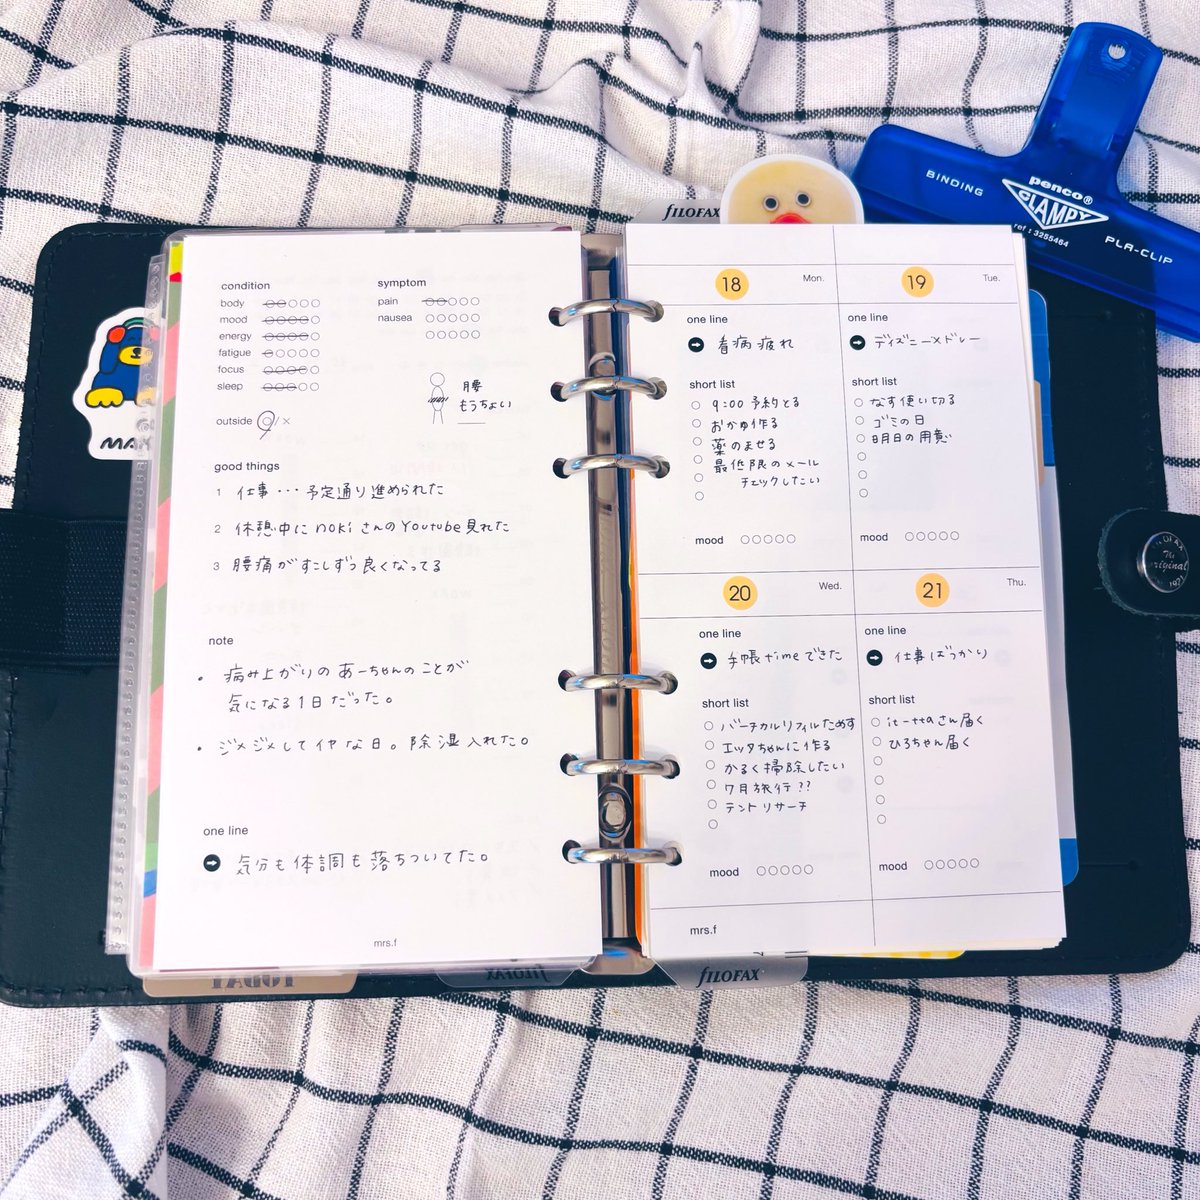 condition
body ○○○○○
mood ○○○○○
energy ○○○○○
fatigue ○○○○○
focus ○○○○○
sleep ○○○○○
symptom
pain ○○○○○
nausea ○○○○○
○○○○○
腰
もうちょい
outside
good things
1 仕事・・・予定通り進められた
2 休憩中にnokiさんのYoutube見れた
3 腰痛がすこしずつ良くなってる
note
・病み上がりのあーちゃんのことが
気になる1日だった。
・ジメジメしてイヤな日。除湿入れた。
one line
気分も体調も落ちついてた。
mrs.f
FILOFAX
18 Mon.
one line
看病疲れ
short list
○ 9:00予約とる
○ おかゆ作る
○ 薬のませる
○ 最低限のメール
○ チェックしたい
○
mood ○○○○○
19 Tue.
one line
ディズニー×ドレー
short list
○ なす使い切る
○ ゴミの日
○ 明日の用意
○
○
○
mood ○○○○○
20 Wed.
one line
手帳timeできた
short list
○ バーチカルリフィルためす
○ エッタちゃんに作る
○ かるく掃除したい
○ 7月旅行??
○ テントリサーチ
○
mood ○○○○○
21 Thu.
one line
仕事ばっかり
short list
○ it-ttaさん届く
○ ひろちゃん届く
○
○
○
○
mood ○○○○○
mrs.f
FILOFAX
FILOFAX
BINDING
penco®
CLAMPY
ref : 3255464
PLA-CLIP
The
original
1921